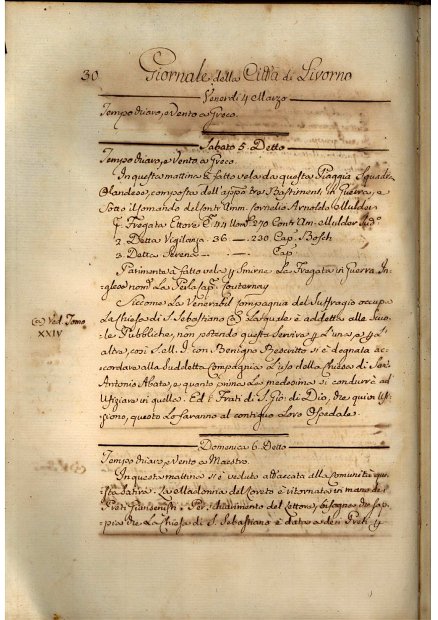 30 Giornale della Città di Livorno
Venerdi 4 Marzo
Tempo chiaro, e Vento a Greco.
Sabato 5. Detto
Tempo chiaro, e Vento, a Greco.
In questa mattina à fatto vela da questa Piaggia Squadra
Olandese, composta dell' tre Bastimenti in Guerra, e
sotto il comando del Contr'Amm. Cornelio Arnoldo Mulder
Fregata Ettore C. 44 Uom. 270 Contr'Am. Mulder
2. Detta Vigilanza 36 — 230 Cap. Bosch
3. Detta Cap.
Parimente à fatto vela p Smirne La Fregata in Guerra In-
glese nom. La Perla Cap. Courtenay
Siccome La Venerabil Compagnia del Suffragio occupa
(a) Ved. Tomo
XXIV
La Chiesa di S. Sebastiano (a) La quale è addetta alle Scuo-
le Pubbliche, non potendo questa servire p L'una, e p L'
altra, così S.A.R. con Benigno Rescritto si è degnata ac-
cordare alla suddetta Compagnia L'uso della Chiesa di Sant'
Antonio Abate, e quanto prima La medesima si condurrà ad
Ufiziare in quella. Ed i Frati di S. Gio: di Dio, che quivi Ufi-
ziono, questo Lo faranno al contiguo Loro Ospedale.
Domenica 6. Detto
Tempo chiaro, e Vento a Maestro.
In questa mattina si è veduto attaccata alla Comunità que-
sta Satira. La Madonna del Loreto è ritornata in mano de i
Preti Per schiarimento del Lettore, bisogna che sap-
pia che La Chiesa di S. Sebastiano è data a dei Preti p